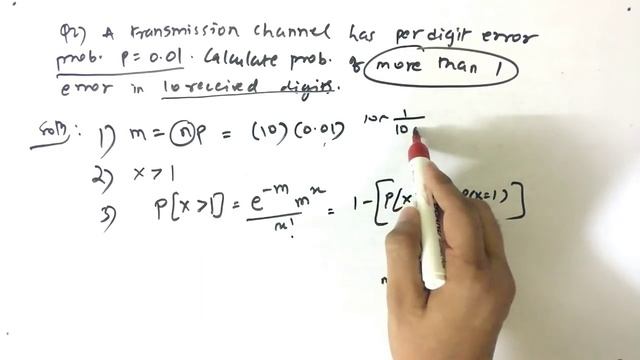 Q2) A transmission channel has per digit error
prob. P = 0.01. Calculate prob. of more than 1
error in 10 received digits.
Soln: 1) m = np = (10)(0.01) 10× 1/10
2) x > 1
3) P[x>1] = e^-m m^x / x! = 1-[P(x P(x=1)]